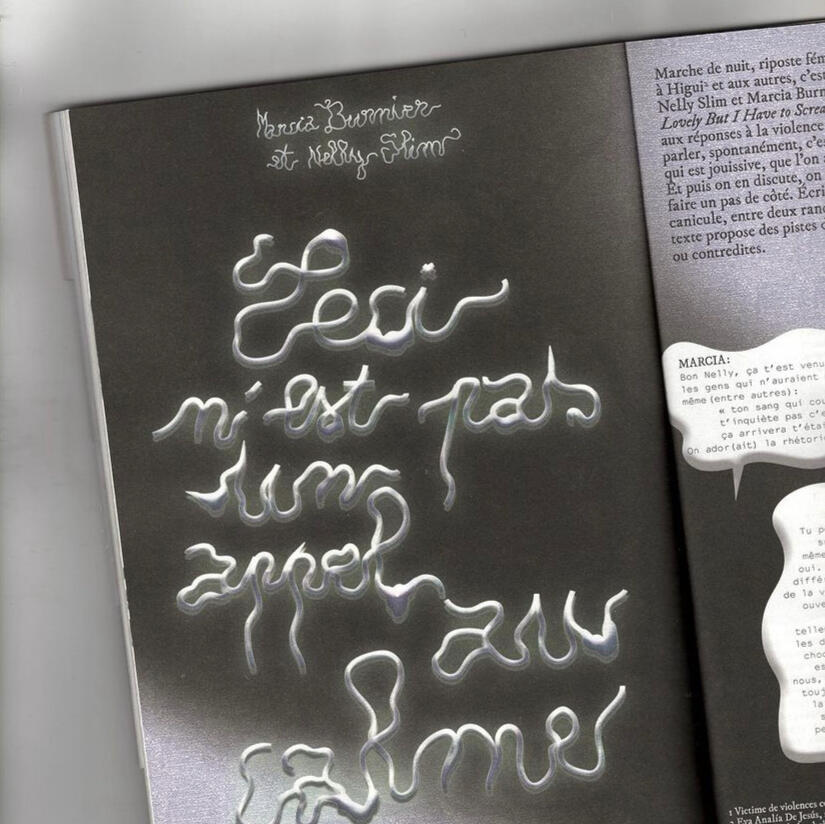 Marcia Burnier
et Nelly Slim
Ceci
n'est pas
un
appel au
calme
Marche de nuit, riposte fém
à Higui² et aux autres, c'est
Nelly Slim et Marcia Burn
Lovely But I Have to Screa
aux réponses à la violence
parler, spontanément, c'es
qui est jouissive, que l'on a
Et puis on en discute, on
faire un pas de côté. Écri
canicule, entre deux rand
texte propose des pistes
ou contredites.
MARCIA:
Bon Nelly, ça t'est venu
les gens qui n'auraient
même (entre autres) :
« ton sang qui cou
t'inquiète pas c'e
ça arrivera t'étai
On ador(ait) la rhétoric
Tu p
s
même
oui.
diffé
de la v
ouve
telle
les d
choc
es
nous,
touj
la
s
pe
1 Victime de violences c
2 Eva Analía De Jesús,